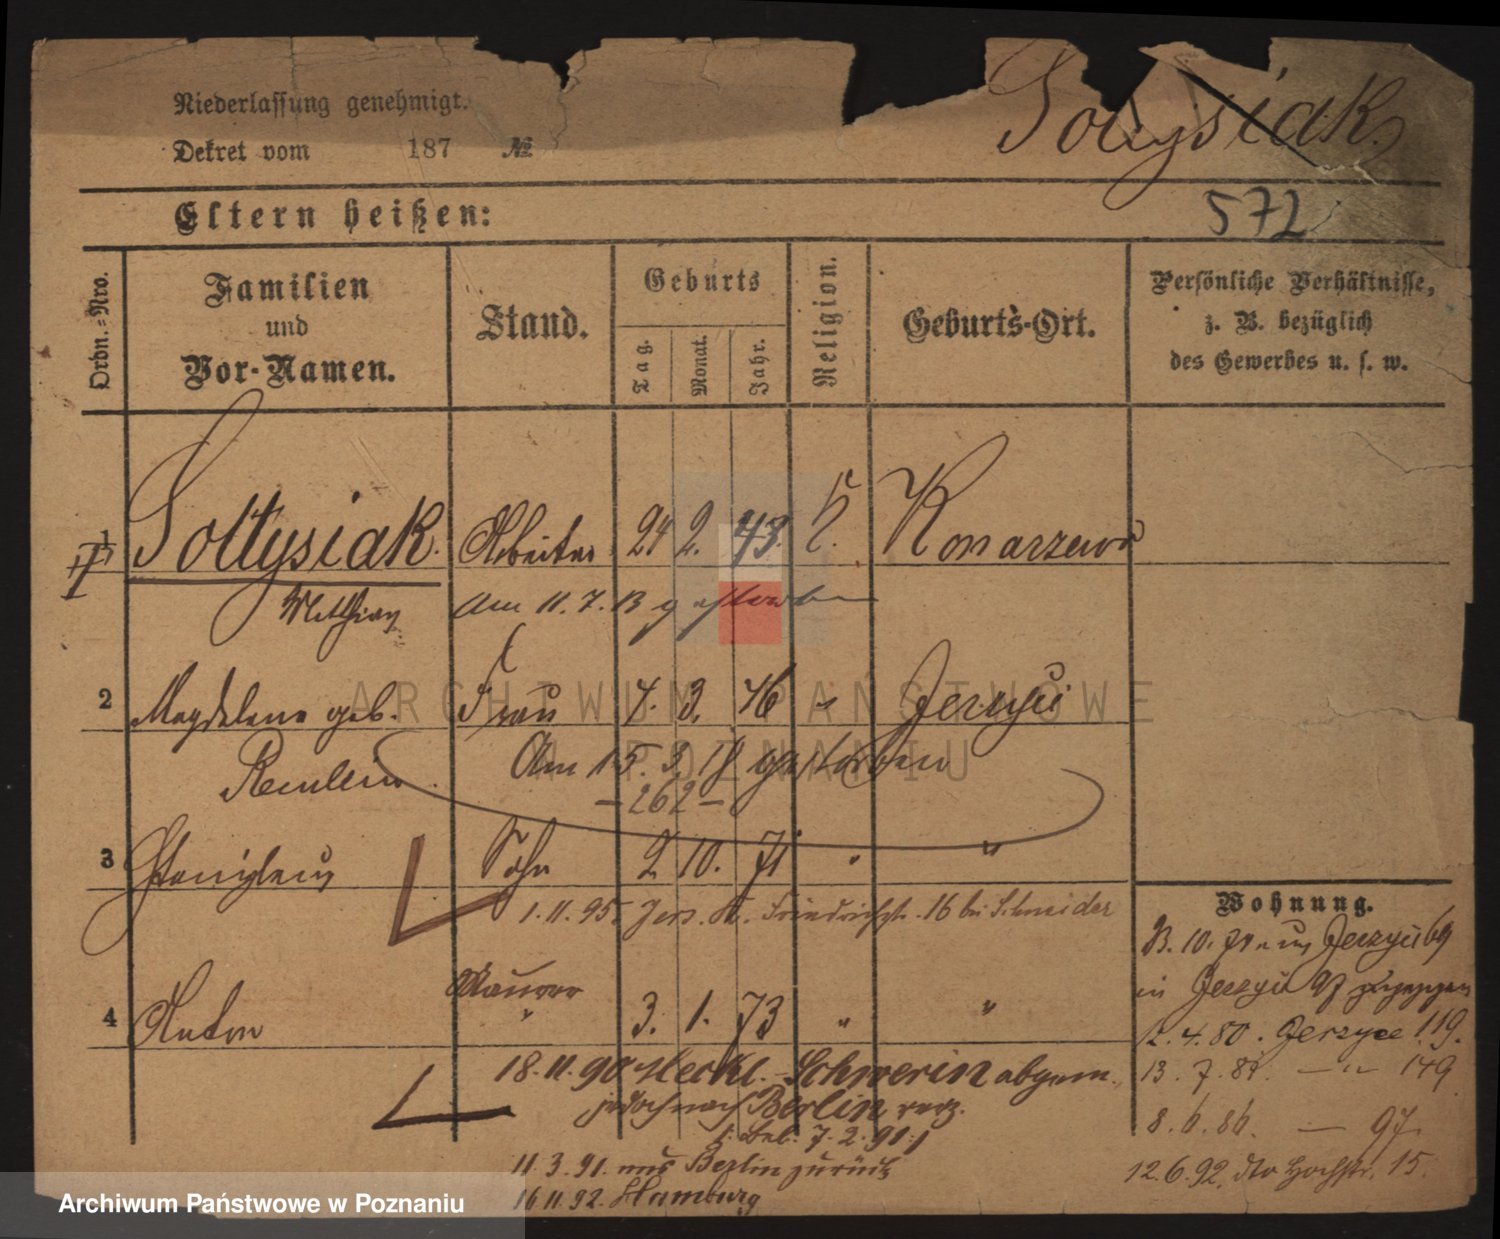 Niederlassung genehmigt.
Dekret vom 187 №
Sołtysiak.
Eltern heißen:
572
Ordn.=Nro.
Familien
und
Vor-Namen.
Stand.
Geburts
Tag.
Monat.
Jahr.
Religion.
Geburts-Ort.
Persönliche Verhältnisse,
z. B. bezüglich
des Gewerbes u. s. w.
1 Sołtysiak. Arbeiter 24 2. 43. K. Konarzewo
Am 11. 7. 13 gestorben
2 Magdelena geb. Frau 7. 3. 46 " Jerzyce
Am 15. 3. 18 gestorben
- 262 -
3 Stanislaus Sohn 2 10. 71 " "
1. 11. 95. Jers. Friedrichstr. 16 bei Schneider
Wohnung.
Jerzyce 69
in Jerzyce 97 gezogen
Maurer
4 Anton " 3. 1. 73 " "
12. 4. 80. Jerzyce 119.
18. 11. 90 Meckl.-Schwerin abgem.
13. 7. 82. — " — 149
jedoch nach Berlin verz.
7. 2. 91
8. 6. 86. — 97
11. 3. 91. aus Berlin zurück
12. 6. 92. dto Hochstr. 15.
16 11. 92. Hamburg
ARCHIWUM PAŃSTWOWE
W POZNANIU
Archiwum Państwowe w Poznaniu